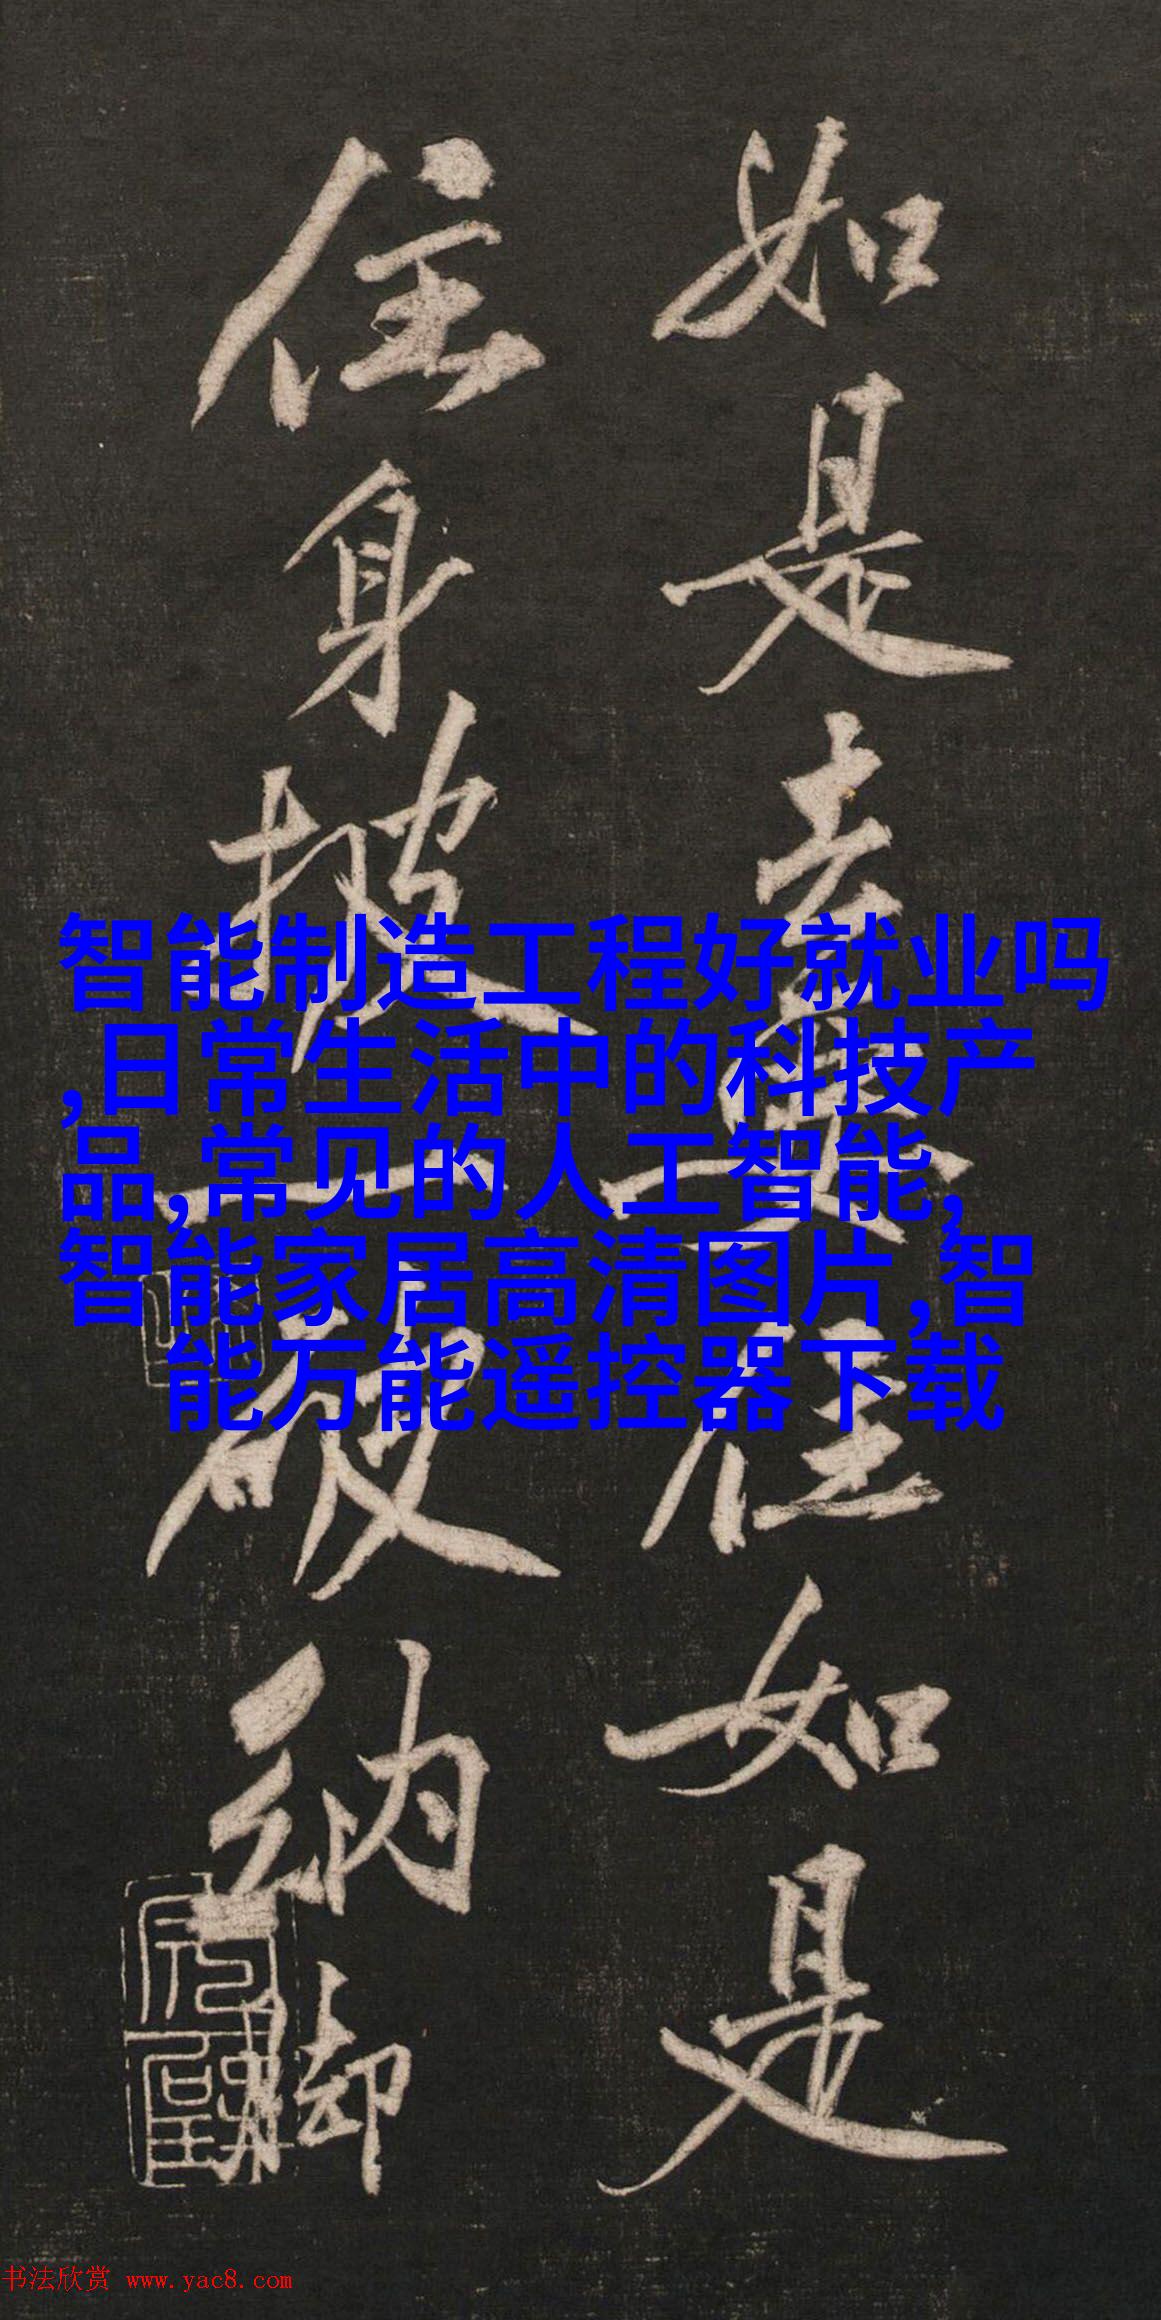 如是去住如是
住身披一破衲脚
智能制造工程好就业吗
,日常生活中的科技产
品,常见的人工智能,
智能家居高清图片,智
能万能遥控器下载
书法欣赏 www.yac8.com